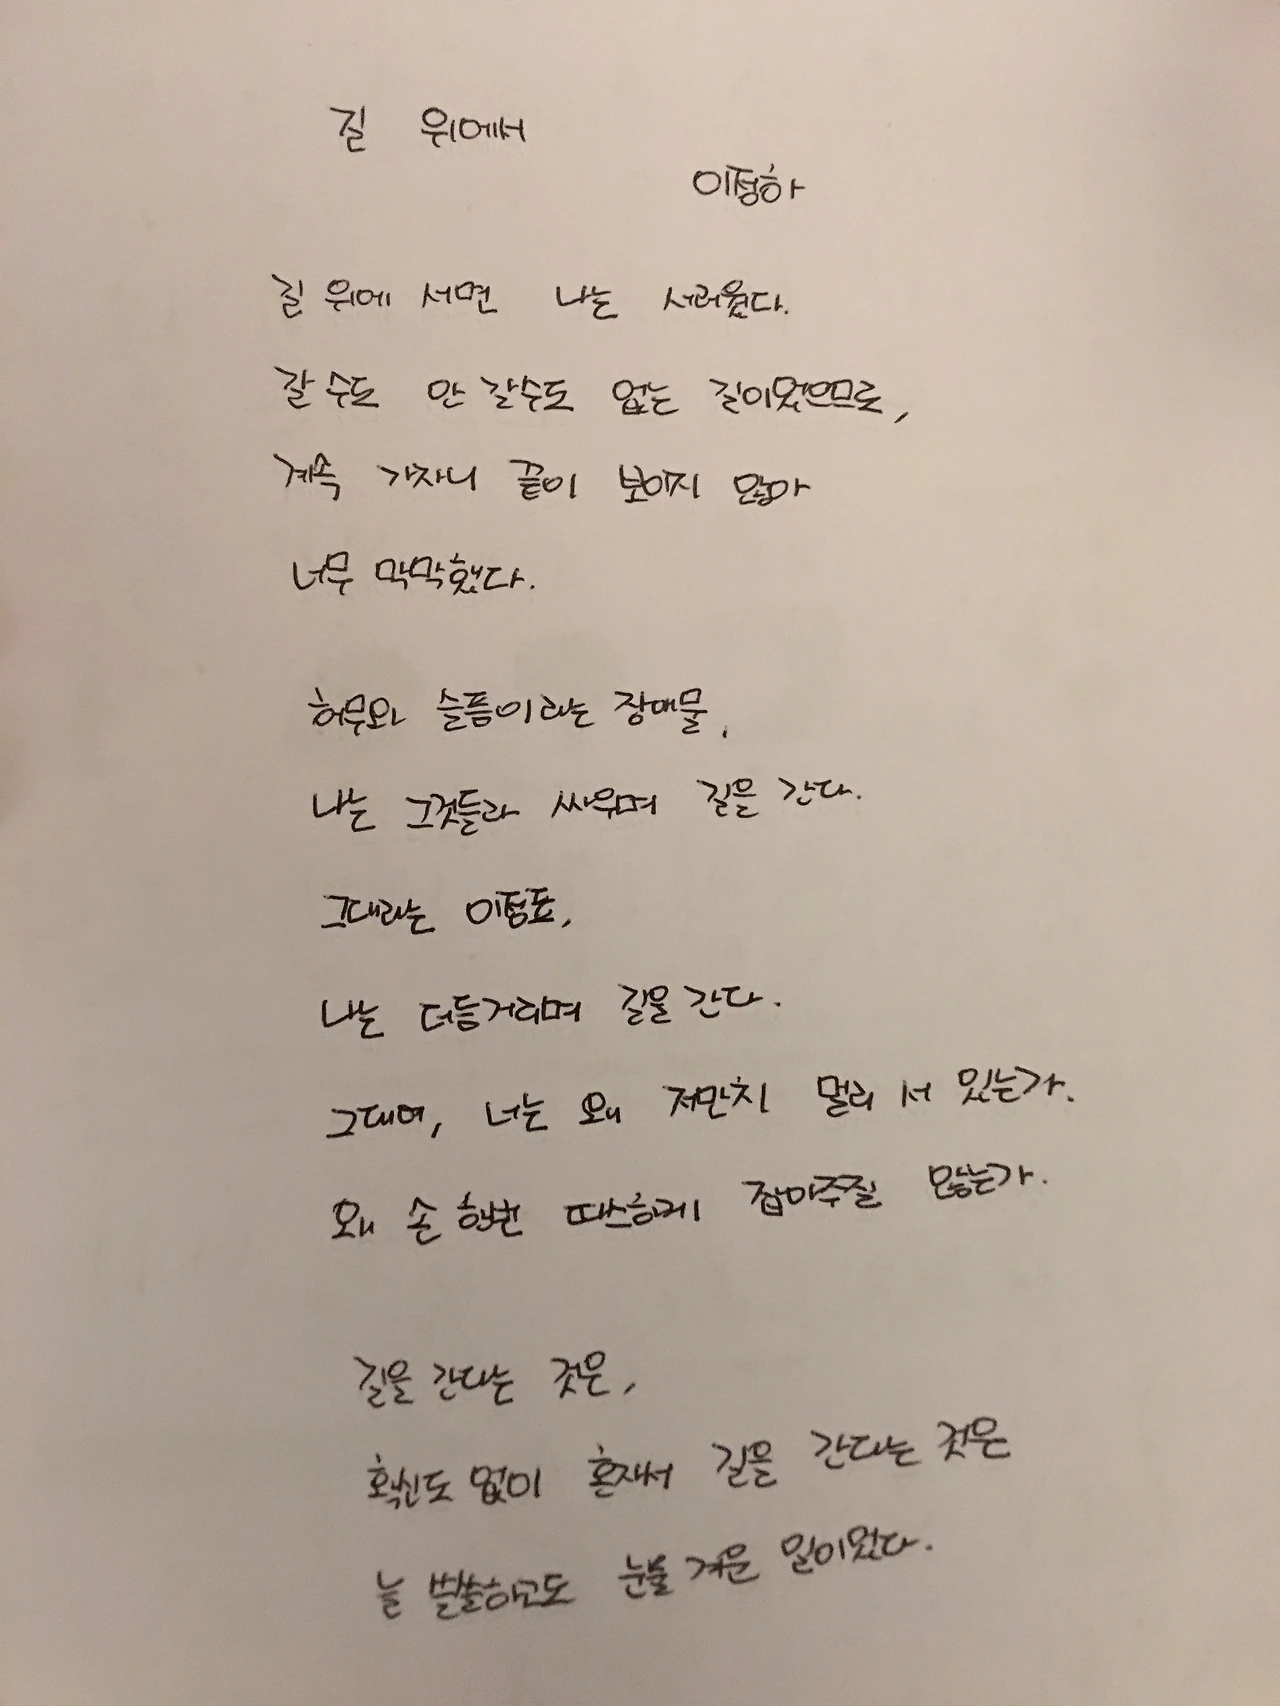 길 위에서
이정하
길 위에 서면 나는 서러웠다.
갈 수도 안 갈수도 없는 길이었으므로,
계속 가자니 끝이 보이지 않아
너무 막막했다.
허무와 슬픔이라는 장애물,
나는 그것들과 싸우며 길을 간다.
그대라는 이정표,
나는 더듬거리며 길을 간다.
그대여, 너는 왜 저만치 멀리 서 있는가.
왜 손 한번 따스하게 잡아주질 않는가.
길을 간다는 것은,
확신도 없이 혼자서 길을 간다는 것은
늘 쓸쓸하고도 눈물 겨운 일이었다.